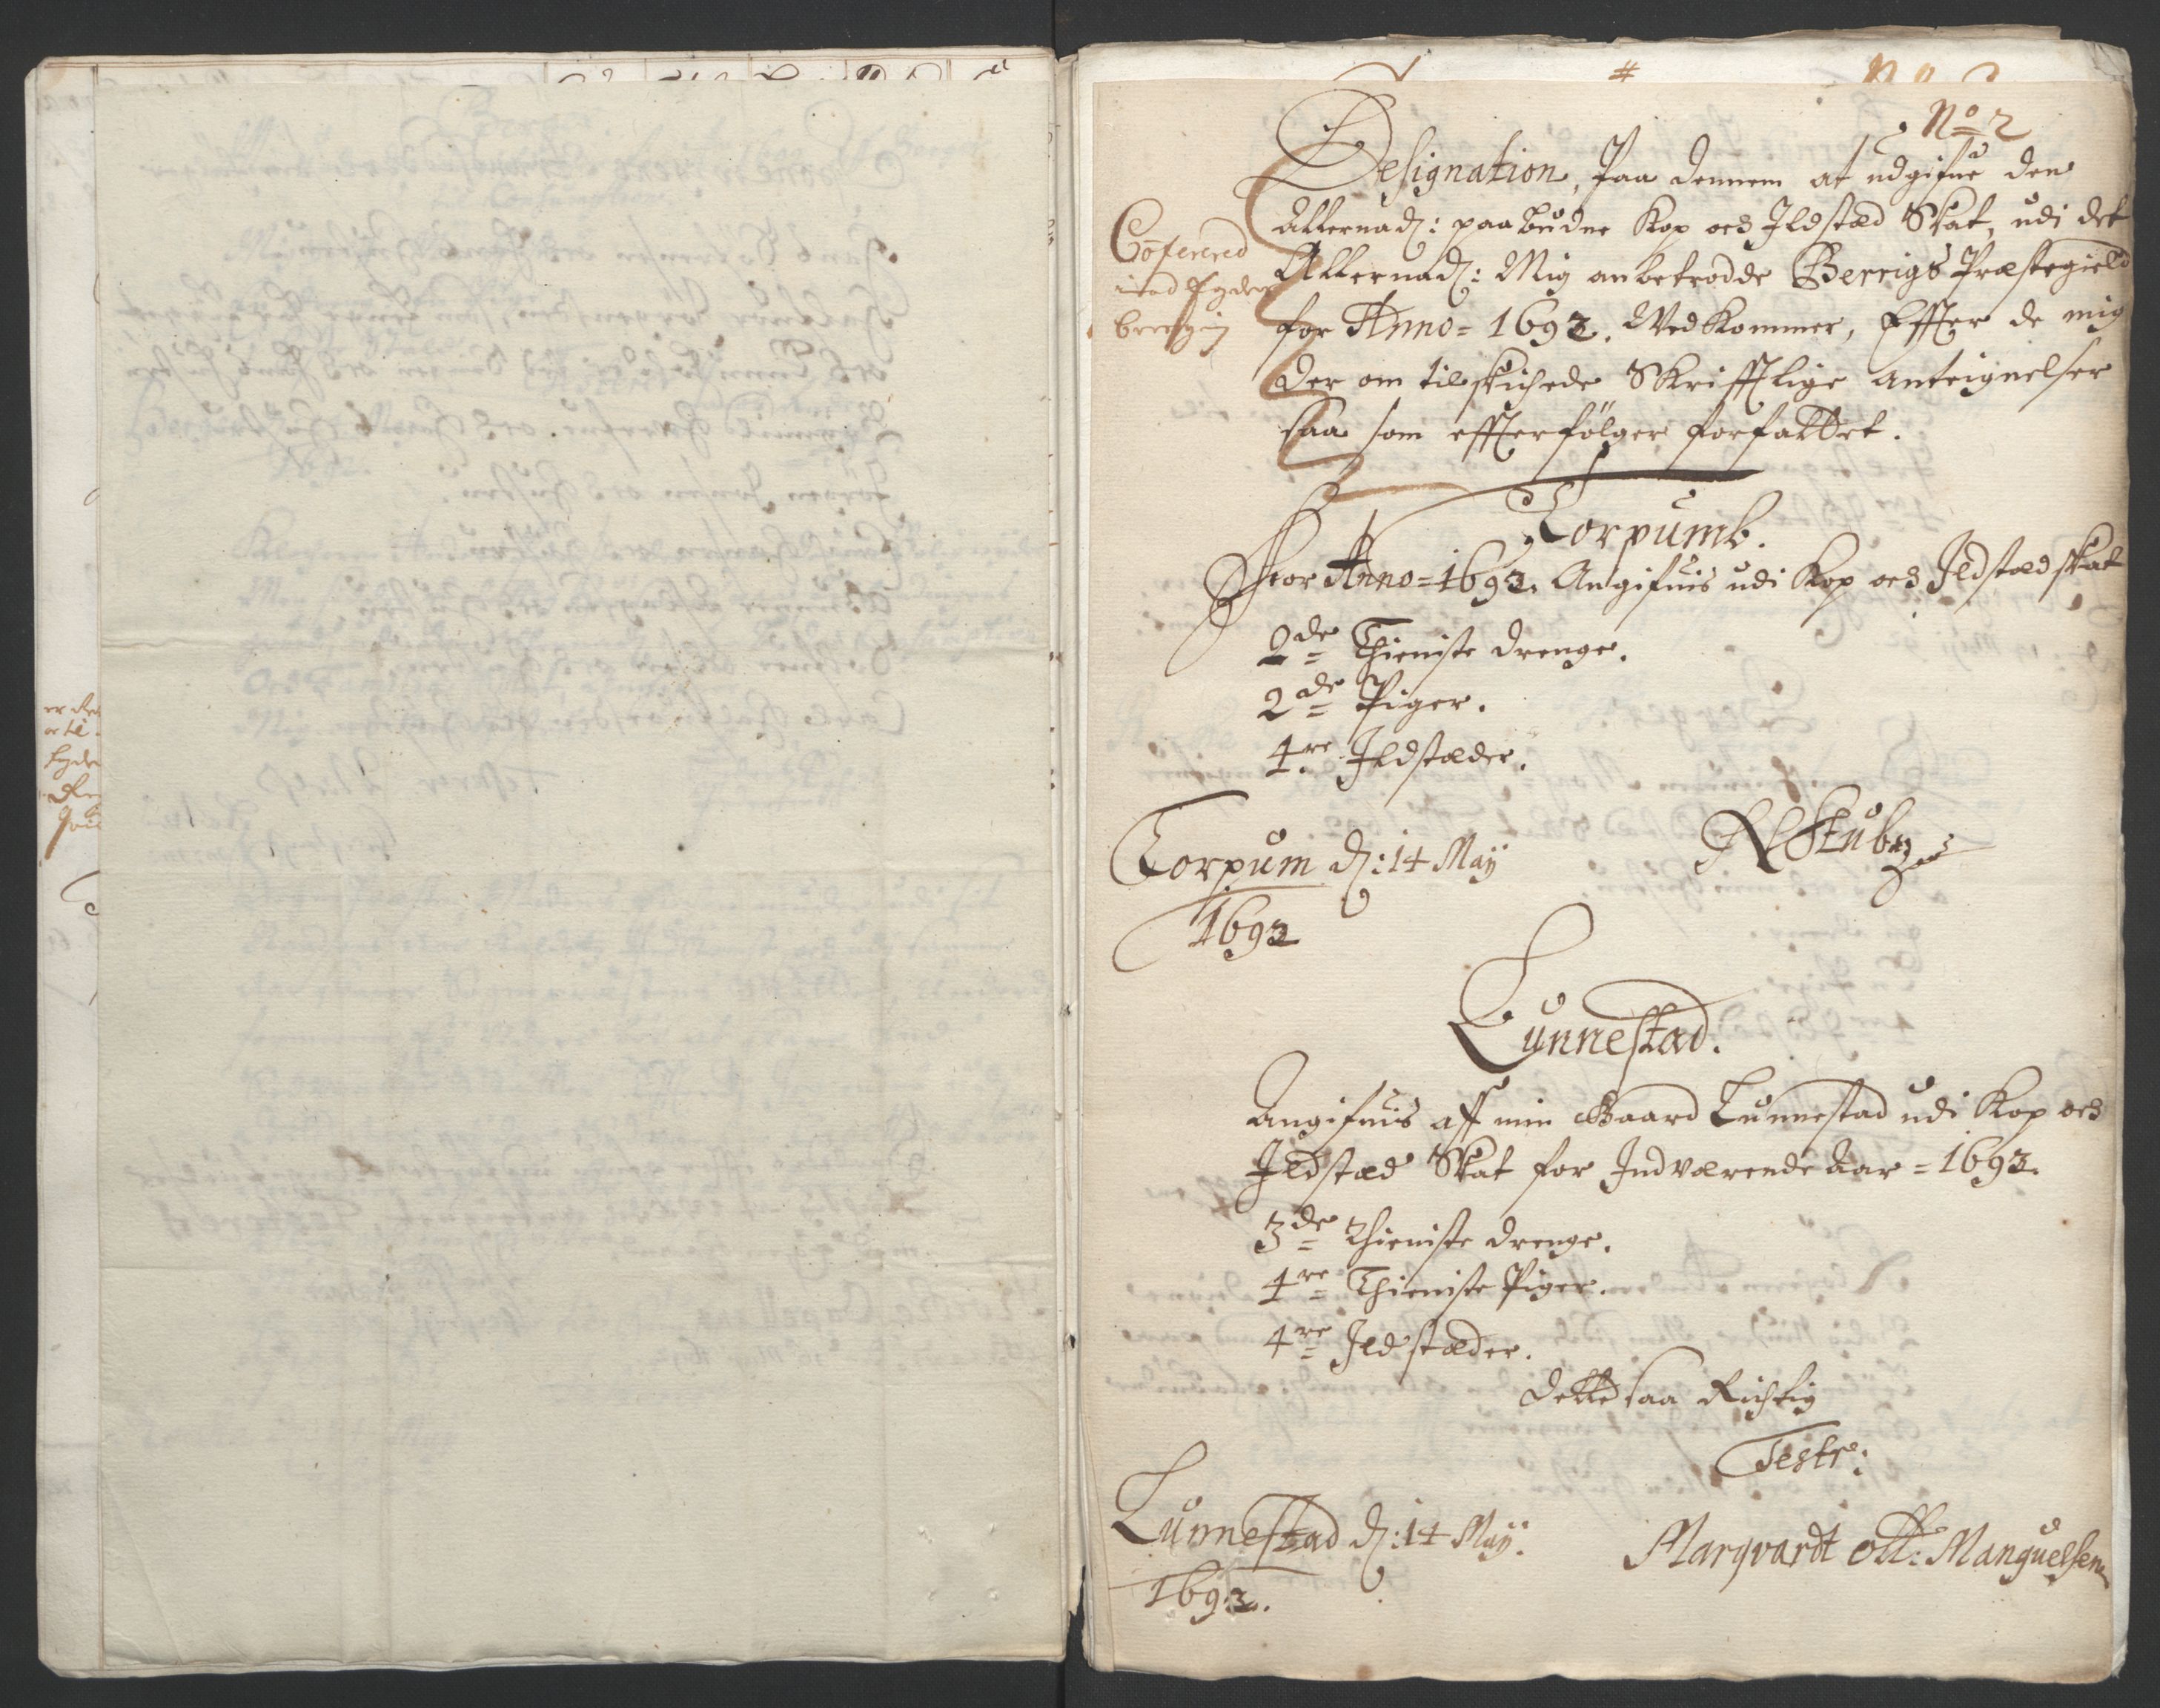 No 2
Designation, Paa dennem at udgifue den
Allernad: paabudne Kop och Ildstæd Skat, udi det
Allernad: Mig anbetrodde Berrigs Præstegield
for Anno = 1693. Wedkommer, Effter de mig
der om tilskichede Skrifftlige Anteignelser
saa som effterfölger forfattet.
Conferered
Torpumb.
For Anno = 1693. Angifuis udi Kop och Ildstædskat
2de Thieniste drenge.
2de Piger.
4re Ildstæder.
Torpum d: 14 May
1693
Lunnestad.
Angifuis aff min Gaard Lunnestad udi Kop och
Ildstæd Skat for Indværende Aar = 1693.
3de Thieniste drenge.
4re Thieniste Piger.
4re Ildstæder.
Dette saa Richtig
Tester:
Lunnestad d: 14 May.
1693.
Marqvardt Ott: Manguelsen